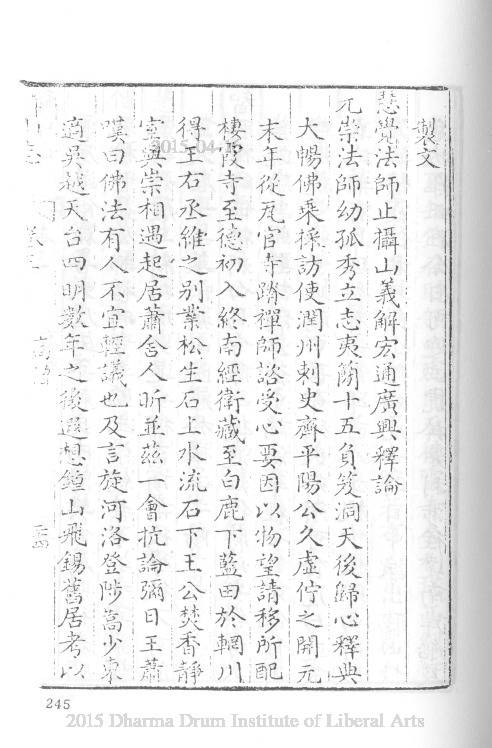 製文
慧覺法師止攝山義解宏通廣興釋論
元崇法師幼孤秀立志夷簡十五負笈洞天後歸心釋典
大暢佛乘採訪使潤州刺史齊平陽公久虛佇之開元
末年從瓦官寺踏禪師諮受心要因以物望請移所配
棲霞寺至德初入終南經衛藏至白鹿下藍田於輞川
得王右丞維之別業松生石上水流石下王公焚香靜
室與崇相遇起居蕭舍人昕並茲一會抗論彌日王蕭
嘆曰佛法有人不宜輕議也及言旋河洛登陟嵩少東
適吳越天台四明數年之後遐想鍾山飛錫舊居考以
245
2015.04
2015 Dharma Drum Institute of Liberal Arts